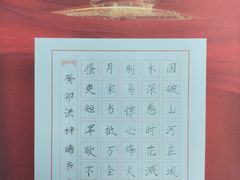 国破山河在城
木深感时花溅
别鸟惊心烽火
月家书抵万金
搔更短浑欲不
癸卯洪梓晴书